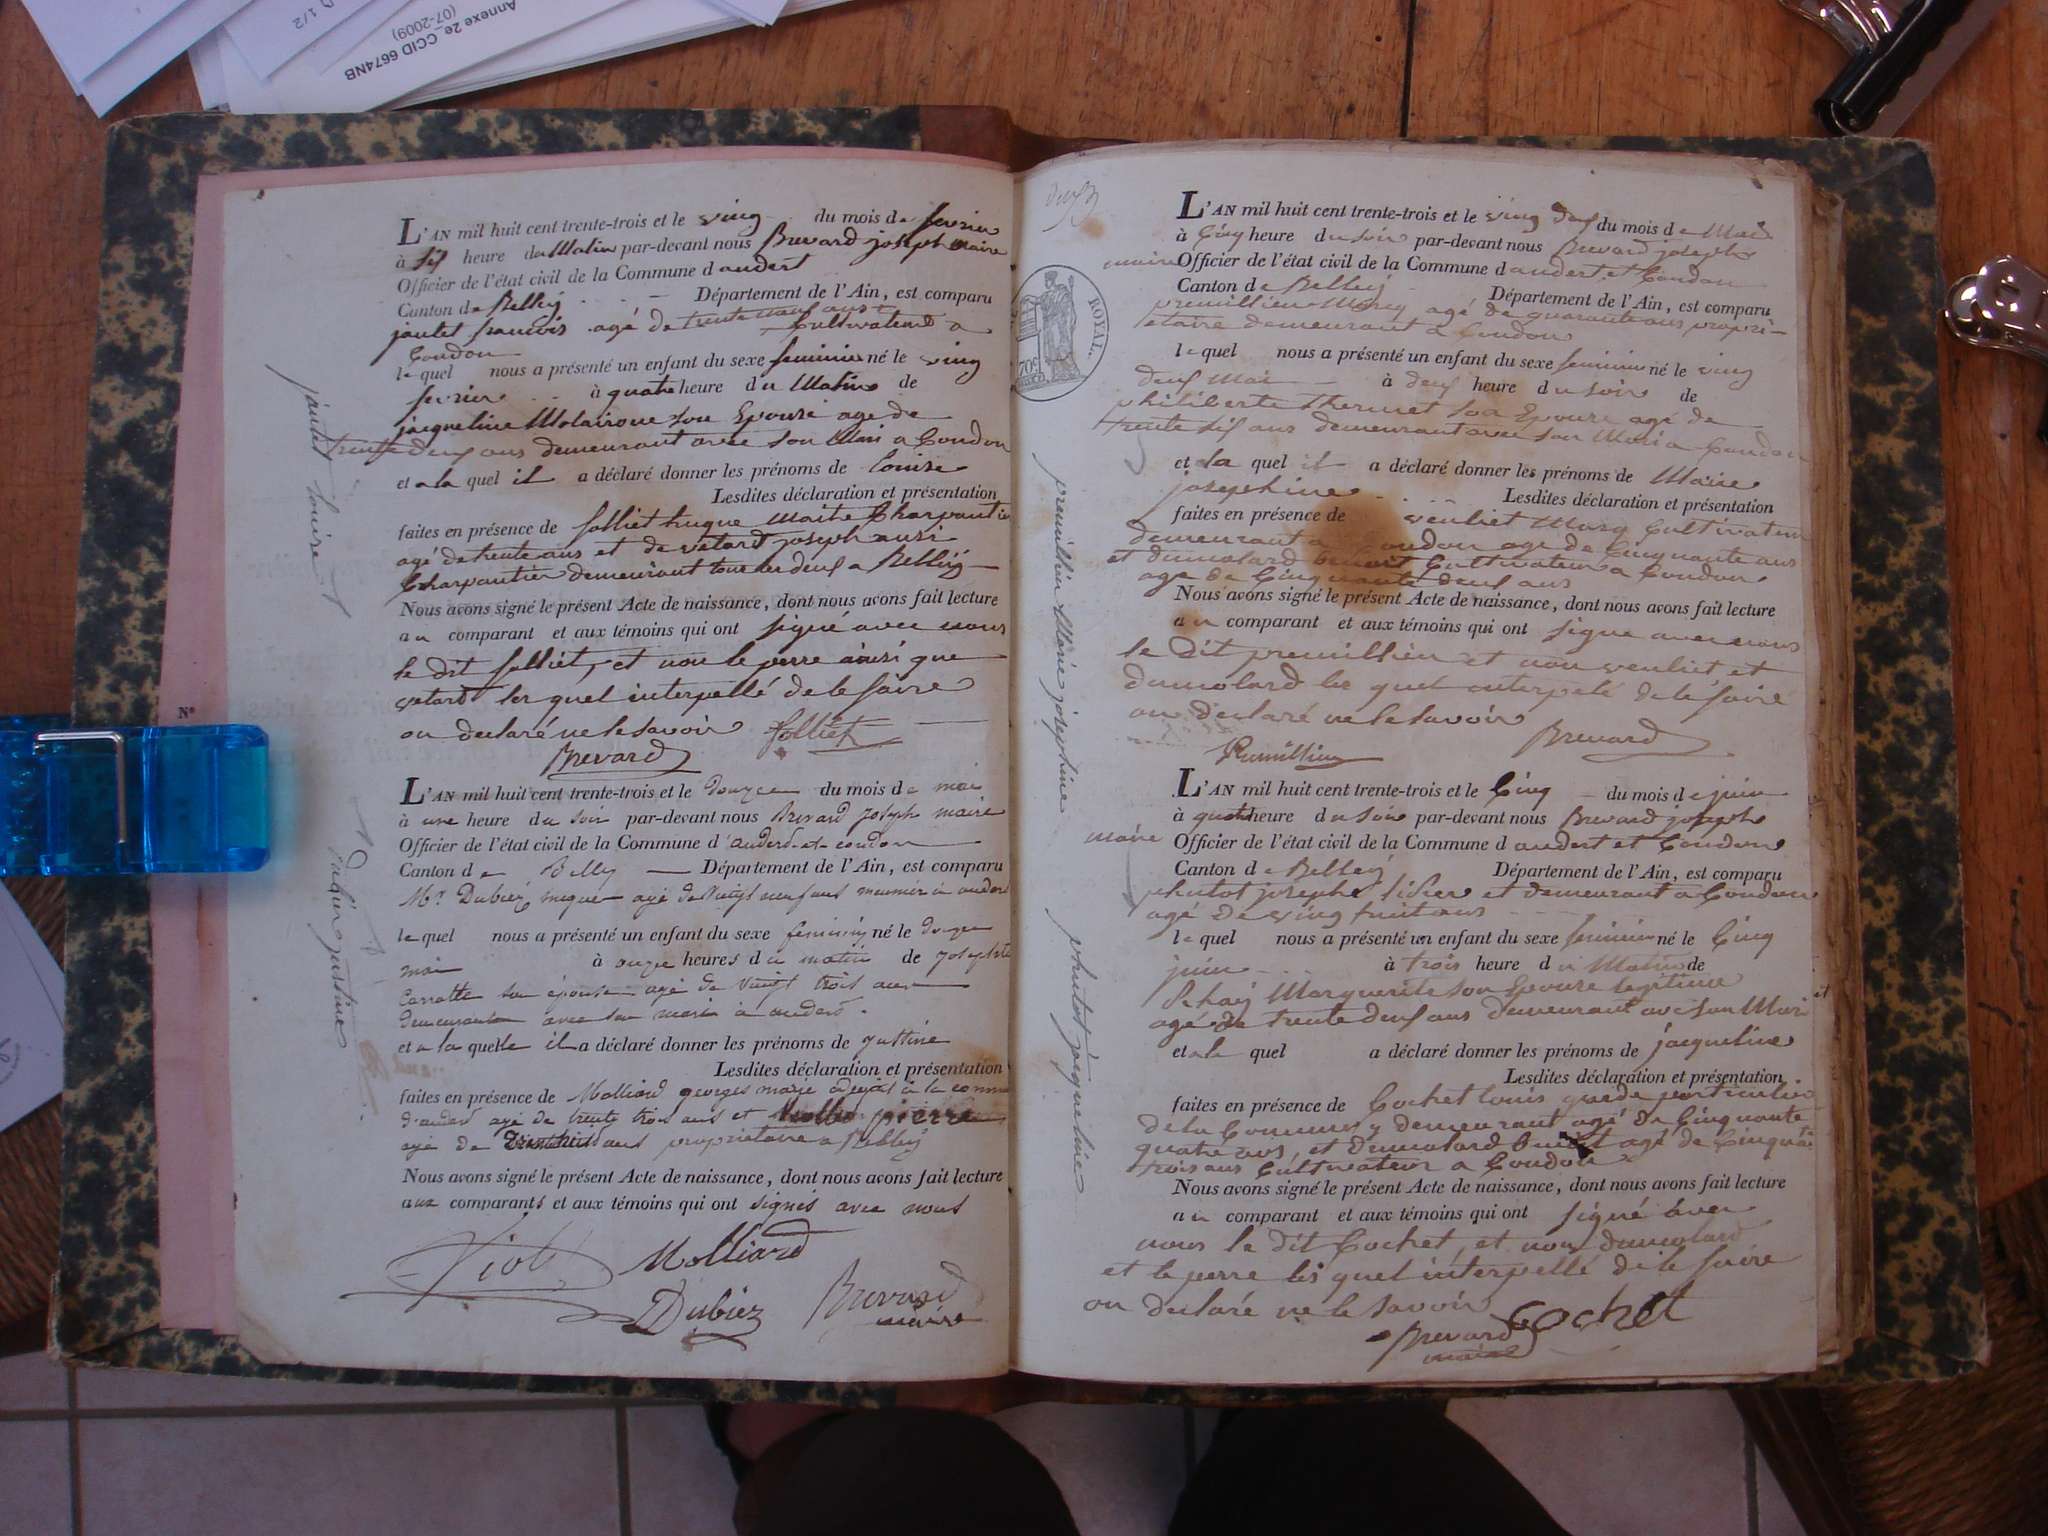 Annexe 2e_CCID 6674NB
(07-2009)
1/2
L'AN mil huit cent trente-trois et le ving du mois de fevrier
à sis heure du Matin par-devant nous Brevard joseph maire
Officier de l'état civil de la Commune d andert
Canton de Belley Département de l'Ain, est comparu
jantet francois agé de trente ans Cultivateur a
Condon
le quel nous a présenté un enfant du sexe feminin né le ving
fevrier à quatre heure du Matin de
jacqueline son Epouse age de
trente deus ans demeurant avec son Mari a Condon
et a la quel il a déclaré donner les prénoms de louise
Lesdites déclaration et présentation
faites en présence de folliet hugue Maite Charpantie
agé de trente ans et de vetard joseph ausi
Charpantier demeurant tous les deus a Belley
Nous avons signé le présent Acte de naissance, dont nous avons fait lecture
au comparant et aux témoins qui ont signé avec nous
le dit folliet, et non le perre ainsi que
vetard les quel interpellé de le faire
on declaré ne le savoir folliet
Brevard
jantet louise
L'AN mil huit cent trente-trois et le douze du mois de mai
à une heure du soir par-devant nous Brevard joseph maire
Officier de l'état civil de la Commune d'anderd et condon
Canton de Belly Département de l'Ain, est comparu
Mr. Dubiez agé de Vingt neuf ans meunier à anderd
le quel nous a présenté un enfant du sexe feminin né le douze
mai à onze heures du matin de josephte
Carrotte son épouse agé de vingt trois ans
demeurant avec son mari à anderd.
et a la quelle il a déclaré donner les prénoms de justine
Lesdites déclaration et présentation
faites en présence de Molliard georges marie adejoit à la comme
d'anderd agé de trente trois ans et pierre
agé de ans propriétaire a Belley
Nous avons signé le présent Acte de naissance, dont nous avons fait lecture
aux comparants et aux témoins qui ont signés avec nous
Violt Molliard
Dubiez Brevard
maire
justine
N°
ROYAL.
70c
L'AN mil huit cent trente-trois et le ving deus du mois de Mai
à Cinq heure du soir par-devant nous Brevard joseph
maire Officier de l'état civil de la Commune d andert et Condon
Canton de Belley Département de l'Ain, est comparu
premillieu Marq agé de quarante ans propri-
etaire demeurant a Condon
le quel nous a présenté un enfant du sexe feminin né le ving
deus Mai à deus heure du soir de
philiberte Thermet son Epouse agé de
trente sis ans demeurant avec son Mari a Condon
et a la quel il a déclaré donner les prénoms de Marie
josephine Lesdites déclaration et présentation
faites en présence de veuliet Marq Cultivateur
demeurant a Condon age de Cinquante ans
et dumolard benoit Cultivateur a Condon
age de Cinquante deus ans
Nous avons signé le présent Acte de naissance, dont nous avons fait lecture
au comparant et aux témoins qui ont signe avec nous
le Dit premillieu et non veuliet et
dumolard les quel interpelé de le faire
on declaré ne le savoir
Premillieu Brevard
premillieu Marie josephine
L'AN mil huit cent trente-trois et le Cinq du mois de juin
à quatre heure du soir par-devant nous Brevard joseph
maire Officier de l'état civil de la Commune d andert et Condon
Canton de Belley Département de l'Ain, est comparu
phutot joseph et demeurant a Condon
agé de ving huit ans
le quel nous a présenté un enfant du sexe feminin né le Cinq
juin à trois heure du Matin de
Marguerite son Epouse legitime
agé de trente deus ans demeurant avec son Mari et
et a la quel a déclaré donner les prénoms de jacqueline
Lesdites déclaration et présentation
faites en présence de Cochet louis garde particulier
de la Commune y demeurant agé de Cinquante
quatre ans, et dumolard benoit agé de Cinquante
trois ans Cultivateur a Condon
Nous avons signé le présent Acte de naissance, dont nous avons fait lecture
au comparant et aux témoins qui ont signé avec
nous le dit Cochet, et non dumolard
et le perre les quel interpellé de le faire
on declaré ne le savoir Cochet
Brevard
maire
phutot jacqueline